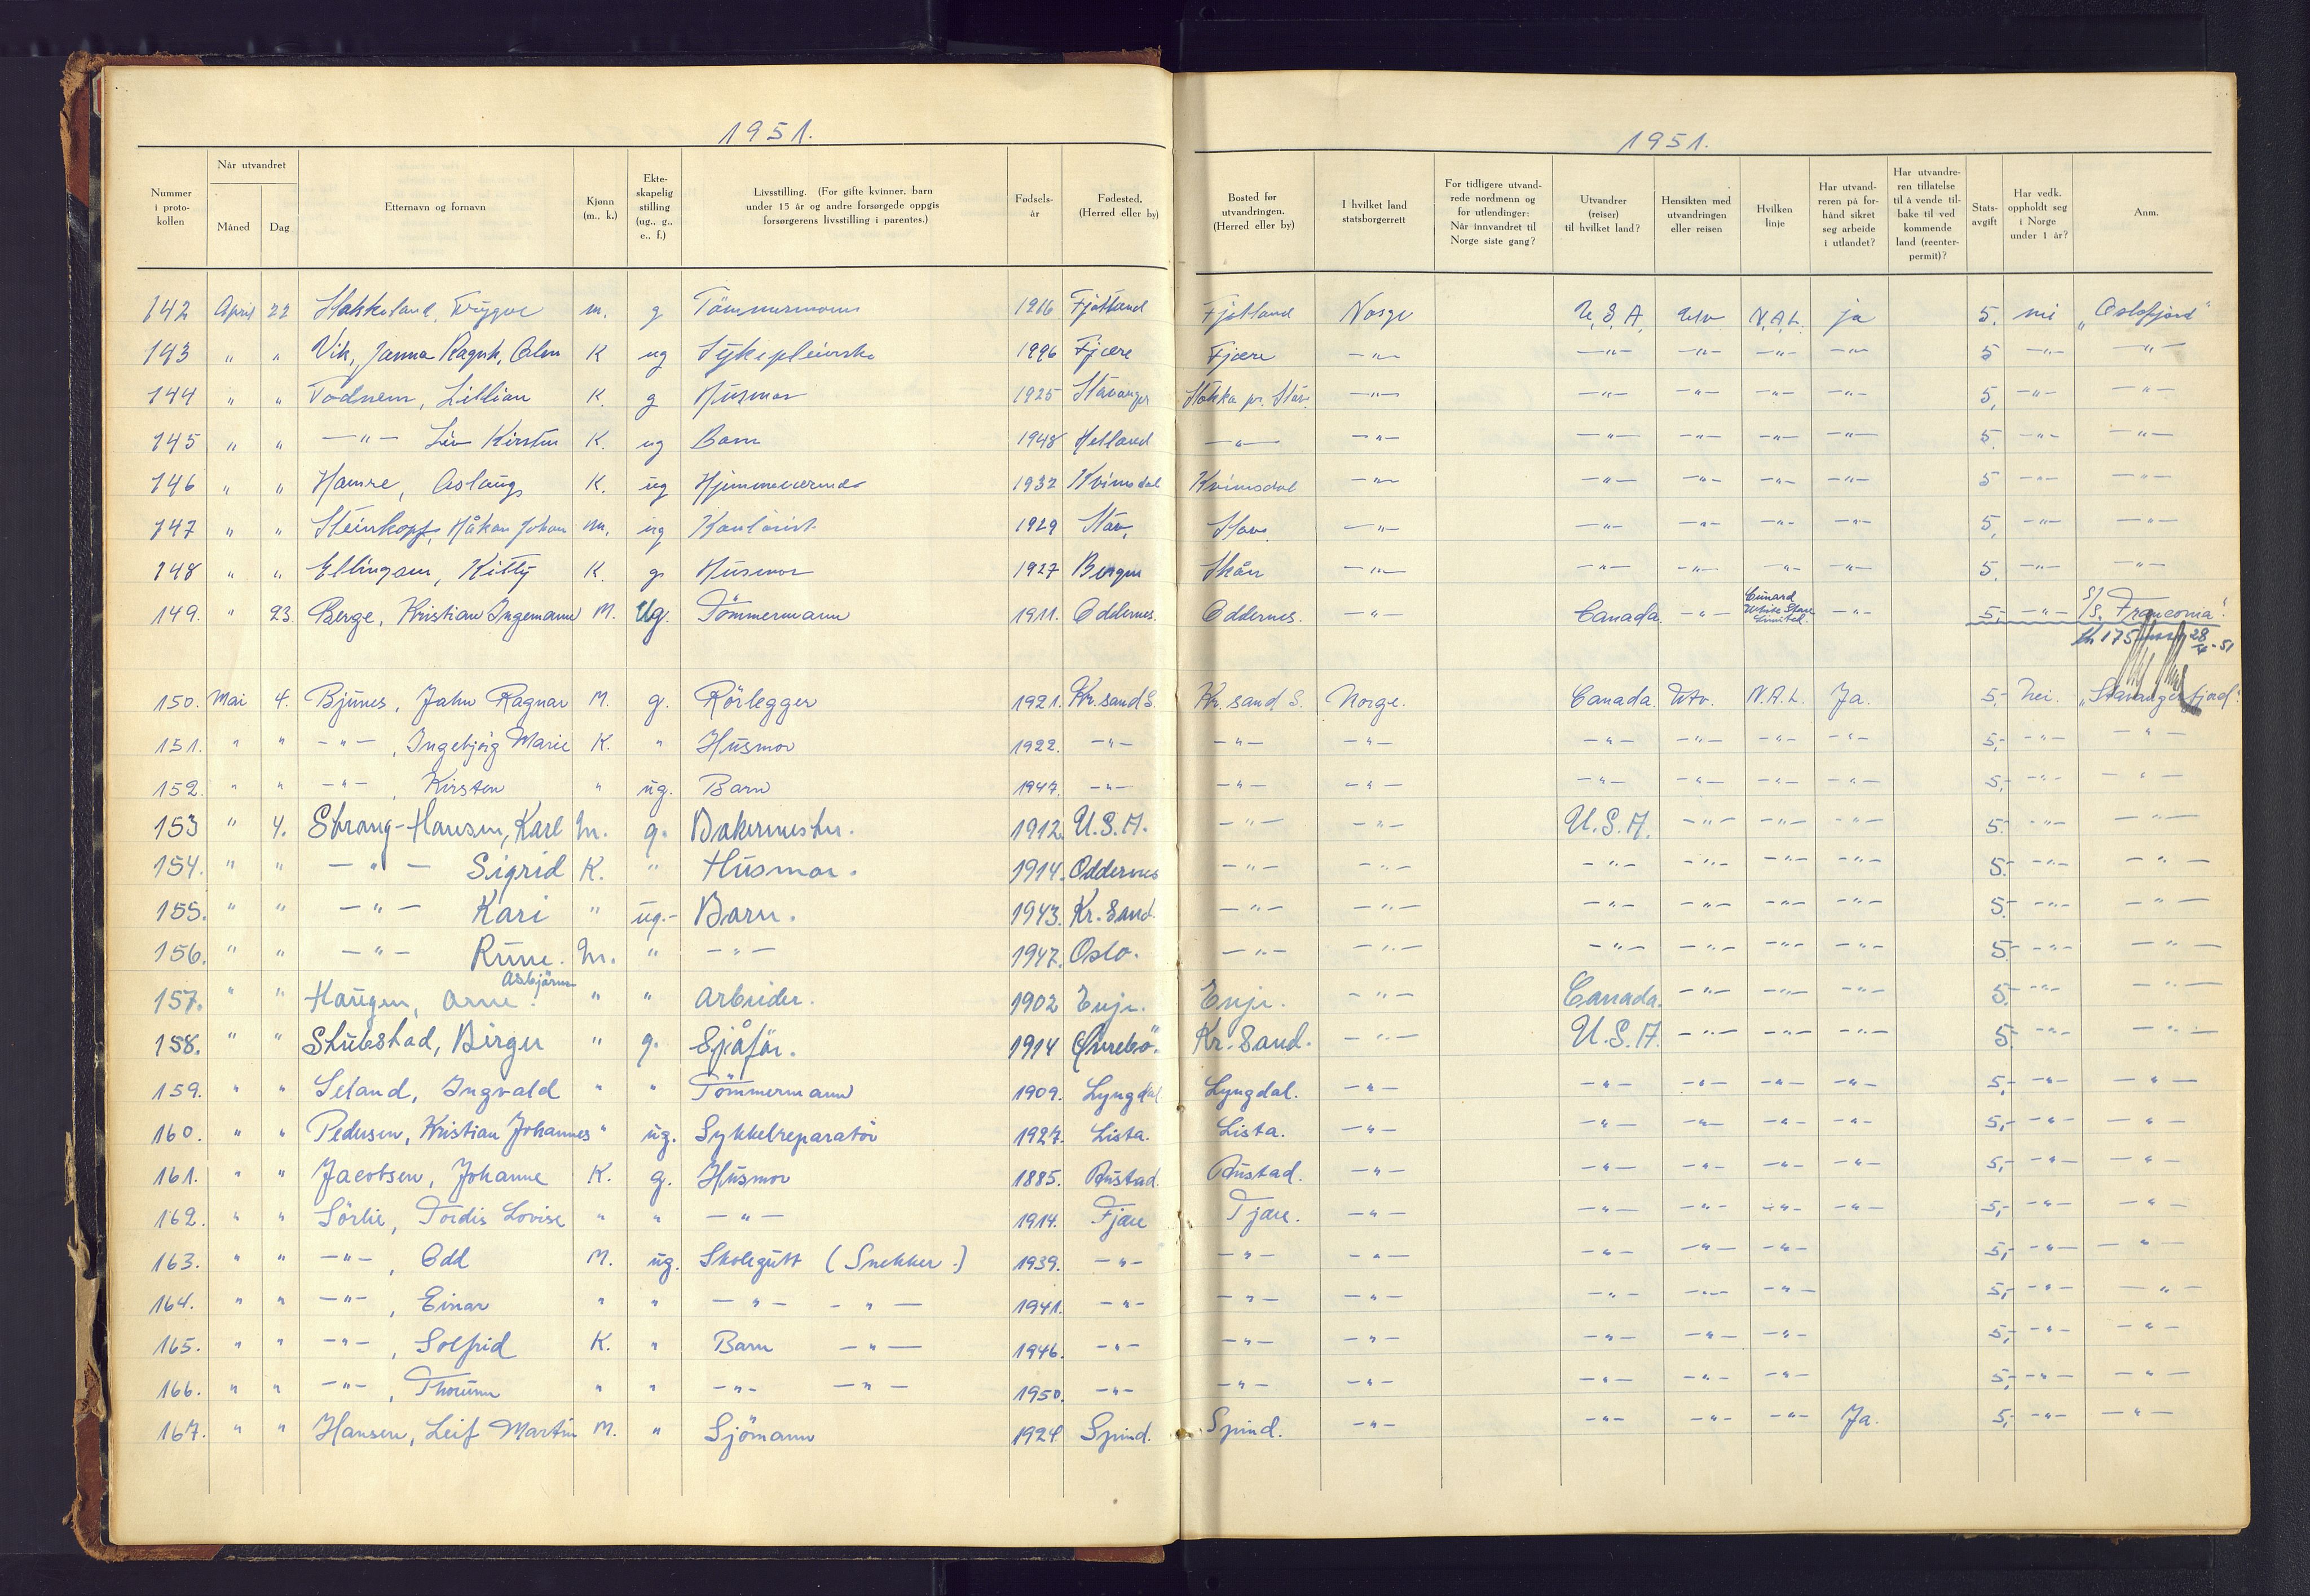 1951.
1951.
Nummer i proto-kollen | Når utvandret Måned Dag | Etternavn og fornavn | Kjønn (m., k.) | Ekte-skapelig stilling (ug., g., e., f.) | Livsstilling. (For gifte kvinner, barn under 15 år og andre forsørgede oppgis forsørgerens livsstilling i parentes.) | Fødsels-år | Fødested. (Herred eller by) | Bosted før utvandringen. (Herred eller by) | I hvilket land statsborgerrett | For tidligere utvand-rede nordmenn og for utlendinger: Når innvandret til Norge siste gang? | Utvandrer (reiser) til hvilket land? | Hensikten med utvandringen eller reisen | Hvilken linje | Har utvand-reren på for-hånd sikret seg arbeide i utlandet? | Har utvandre-ren tillatelse til å vende til-bake til ved kommende land (reenter-permit)? | Stats-avgift | Har vedk. oppholdt seg i Norge under 1 år? | Anm.
142 April 22 Trygve m. g Tömmermann 1916 Fjotland Fjotland Norge U.S.A. Utv N.A.L. ja 5. nei „Oslofjord"
143 " " Vik, K ug Sykepleierske Fjære Fjære —"— —"— —"— —"— —"— 5 —"— —"—
144 " " Todnem, Lillian K. g Husmor 1925 Stavanger —"— —"— —"— —"— —"— 5, —"— —"—
145 " " —"— Liv Kirsten K. ug Barn 1948 Hetland —"— —"— —"— —"— —"— —"— 5. —"— —"—
146 " " Hamre, Aslaug K. ug Hjemmeværende 1932 Kvinesdal Kvinesdal —"— —"— —"— —"— —"— 5 —"— —"—
147 " " Steinkopf, Håkon Johan m. ug Kontorist 1929 Stav. Stav. —"— —"— —"— —"— —"— 5, —"— —"—
148 " " Kitty K. g Husmor 1927 Bergen Skåre —"— —"— —"— —"— —"— 5. —"— —"—
149. " 23. Berge, Kristian Ingemann M. Ug. Tömmermann 1911. Oddernes. Oddernes. —"— Canada. —"— Cunard White Star Limited. —"— 5,- —"— S/S. „Franconia".
175 28/4-51
150. Mai 4. Bjunes, John Ragnar M. g. Rörlegger 1921. Kr.sand S. Kr.sand S. Norge. Canada. Utv. N.A.L. Ja. 5,- Nei. „Stavangerfjord".
151. " " —"—, Ingebjörg Marie K. " Husmor 1922. —"— —"— —"— —"— —"— —"— —"— 5,- —"— —"—
152. " " —"—, Kirsten " ug. Barn 1947. —"— —"— —"— —"— —"— —"— —"— 5,- —"— —"—
153 " 4. Strang-Hansen, Karl m. g. Bakermester. 1912. U.S.A. —"— —"— U.S.A. —"— —"— —"— 5.- —"— —"—
154. " " —"— Sigrid K. " Husmor. 1914. Oddernes —"— —"— —"— —"— —"— —"— 5.- —"— —"—
155. " " —"— Kari " ug.- Barn. 1943. Kr.Sand. —"— —"— —"— —"— —"— —"— 5.- —"— —"—
156. " " —"— Rune. m. " —"— 1947. Oslo. —"— —"— —"— —"— —"— —"— 5.- —"— —"—
157. " " Haugen, Arne Asbjörn. " " Arbeider. 1902 Evje. Evje. —"— Canada. —"— —"— —"— 5.- —"— —"—
158. " " Stubstad, Birger " g. Sjåför. 1914 Kr.Sand. —"— U.S.A. —"— —"— —"— 5.- —"— —"—
159. " " Seland, Ingvald " " Tömmermann 1909. Lyngdal Lyngdal. —"— —"— —"— —"— —"— 5,- —"— —"—
160. " " Pedersen, Kristian Johannes " ug. Sykkelreparatör 1927. Lista. Lista. —"— —"— —"— —"— —"— 5,- —"— —"—
161. " " Jacobsen, Johanne K. g. Husmor 1885. —"— —"— —"— —"— —"— 5,- —"— —"—
162. " " Sörlie, Tordis Lovise " " —"— 1914. Fjære Fjære. —"— —"— —"— —"— —"— 5,- —"— —"—
163. " " —"—, Odd M. ug. Skolegutt (Snekker.) 1939. —"— —"— —"— —"— —"— —"— 5,- —"— —"—
164. " " —"—, Einar " " —"— —"— 1941. —"— —"— —"— —"— —"— —"— 5,- —"— —"—
165. " " —"—, Solfrid K. " Barn —"— 1946. —"— —"— —"— —"— —"— —"— 5,- —"— —"—
166. " " —"—, Thorunn " " —"— —"— 1950. —"— —"— —"— —"— —"— —"— 5,- —"— —"—
167. " " Hansen, Leif Martin M. " Sjömann 1924. Spind. Spind. —"— —"— —"— —"— Ja. 5,- —"— —"—